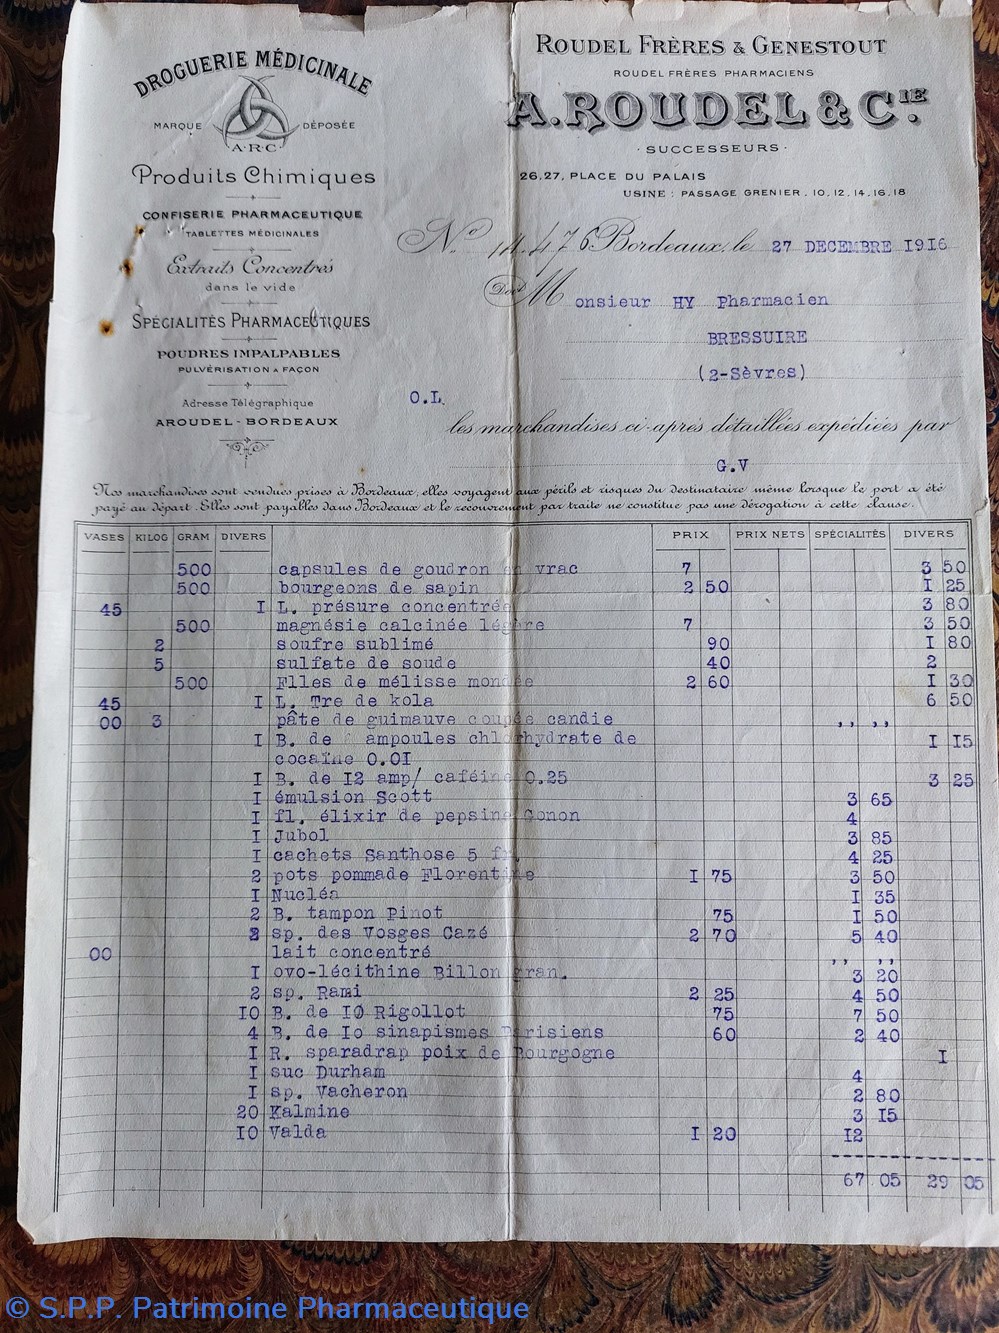 DROGUERIE MÉDICINALE
MARQUE DÉPOSÉE
A.R.C.
Produits Chimiques
CONFISERIE PHARMACEUTIQUE
TABLETTES MÉDICINALES
Extraits Concentrés
dans le vide
SPÉCIALITÉS PHARMACEUTIQUES
POUDRES IMPALPABLES
PULVÉRISATION A FAÇON
Adresse Télégraphique
AROUDEL - BORDEAUX
ROUDEL FRÈRES & GENESTOUT
ROUDEL FRÈRES PHARMACIENS
A. ROUDEL & CIE.
· SUCCESSEURS ·
26, 27, PLACE DU PALAIS
USINE : PASSAGE GRENIER. 10, 12, 14, 16, 18
No 14.476 Bordeaux, le 27 DECEMBRE 1916
Doit Monsieur HY Pharmacien
BRESSUIRE
(2-Sèvres)
O.L.
les marchandises ci-après détaillées expédiées par
G.V
Nos marchandises sont vendues prises à Bordeaux, elles voyagent aux périls et risques du destinataire même lorsque le port a été
payé au départ. Elles sont payables dans Bordeaux et le recouvrement par traite ne constitue pas une dérogation à cette clause.
VASES KILOG GRAM DIVERS PRIX PRIX NETS SPÉCIALITÉS DIVERS
500 capsules de goudron en vrac 7 3 50
500 bourgeons de sapin 2 50 I 25
45 I L. présure concentrée 3 80
500 magnésie calcinée légère 7 3 50
2 soufre sublimé 90 I 80
5 sulfate de soude 40 2
500 Flles de mélisse mondée 2 60 I 30
45 I L. Tre de kola 6 50
00 3 pâte de guimauve coupée candie ,, ,,
I B. de ampoules chlorhydrate de
cocaïne 0.0I I I5
I B. de I2 amp/ caféine 0.25 3 25
I émulsion Scott 3 65
I fl. élixir de pepsine Gonon 4
I Jubol 3 85
I cachets Santhose 5 fr. 4 25
2 pots pommade Florentine I 75 3 50
I Nucléa I 35
2 B. tampon Pinot 75 I 50
2 sp. des Vosges Cazé 2 70 5 40
00 lait concentré ,, ,,
I ovo-lécithine Billon gran. 3 20
2 sp. Rami 2 25 4 50
IO B. de IO Rigollot 75 7 50
4 B. de Io sinapismes Parisiens 60 2 40
I R. sparadrap poix de Bourgogne I
I suc Durham 4
I sp. Vacheron 2 80
20 Kalmine 3 I5
IO Valda I 20 I2
67 05 29 05
© S.P.P. Patrimoine Pharmaceutique